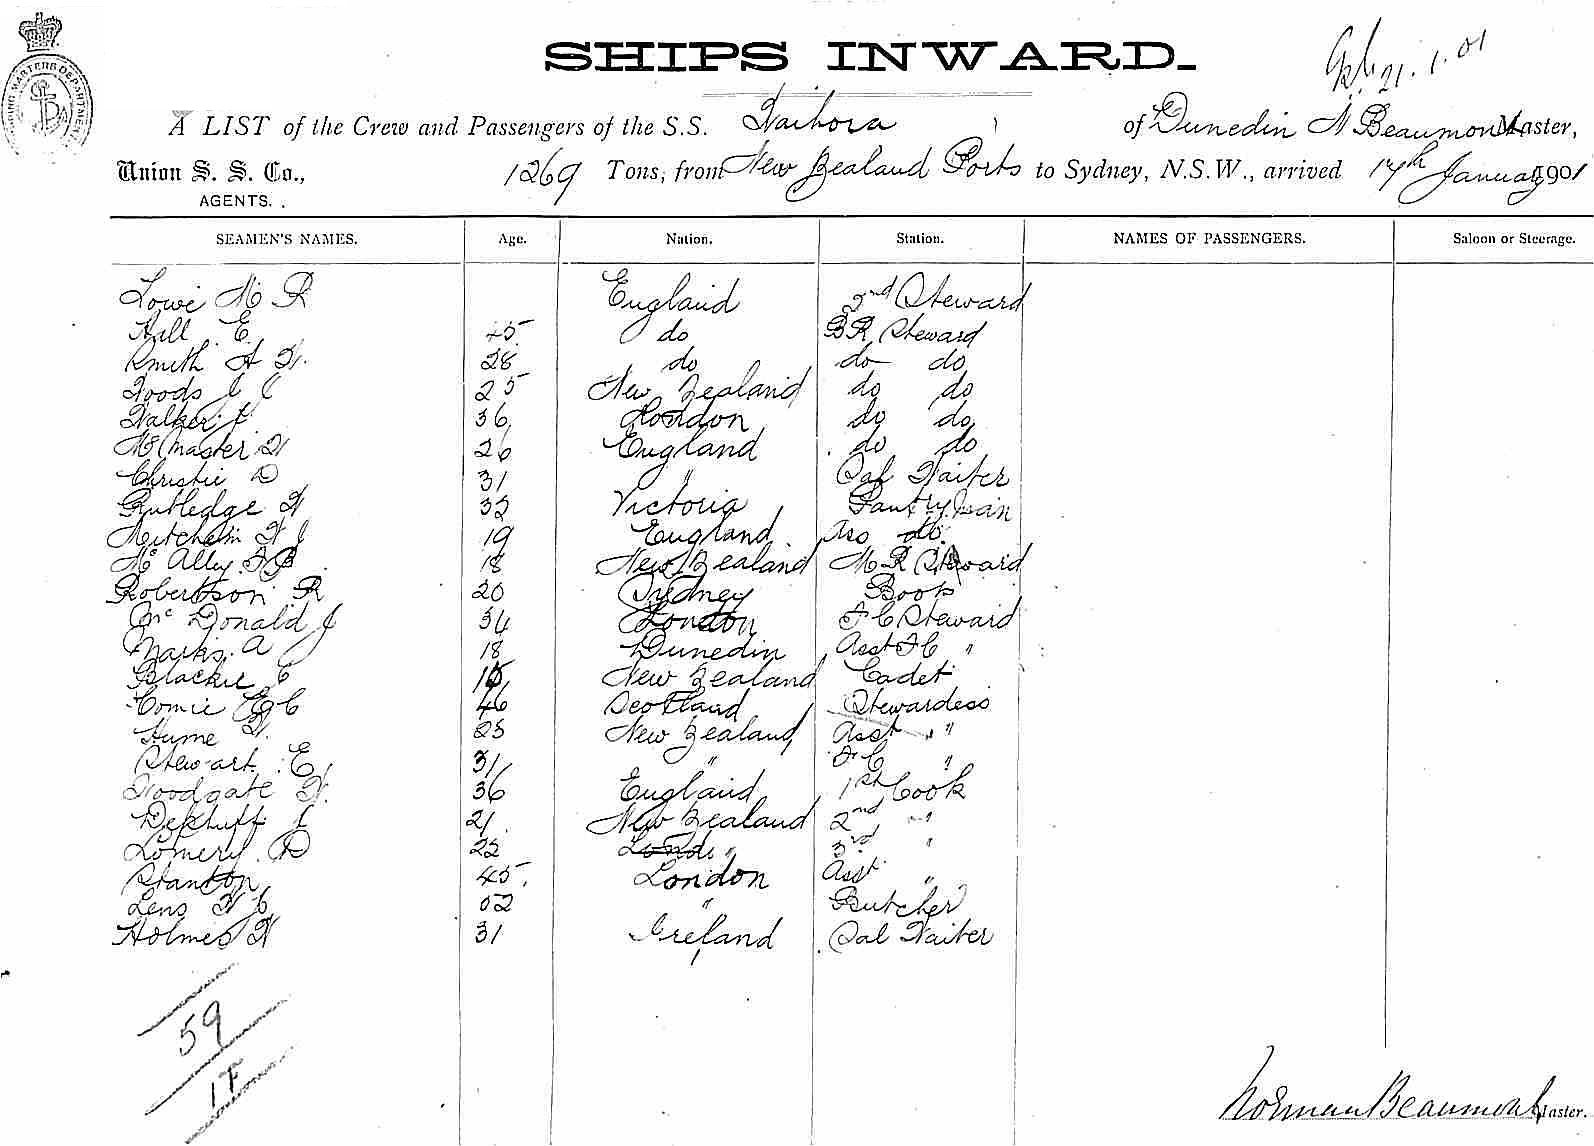 SHIPS INWARD.
21.1.01
A LIST of the Crew and Passengers of the S.S. Waihora of Dunedin N Beaumont Master,
Union S. S. Co., 1269 Tons, from New Zealand Ports to Sydney, N.S.W., arrived 17th January 1901
AGENTS.
SEAMEN'S NAMES. Age. Nation. Station. NAMES OF PASSENGERS. Saloon or Steerage.
Lowe M R England 2nd Steward
Hall E 45 do BR Steward
Smith A W. 28 do do do
Woods J C 25 New Zealand do do
Walker J 36 London do do
McMaster W 26 England do do
Christie D 31 " Sal Waiter
Rutledge W 32 Victoria Pantryman
Mitchelm W J 19 England Ass do.
McAlley 18 New Zealand M R Steward
Robertson R 20 Sydney Boots
McDonald J 34 London F C Steward
Marks A 18 Dunedin Asst F C "
Blackie E 15 New Zealand Cadet
Comie E C 46 Scotland Stewardess
Hume W. 23 New Zealand Asst "
Stewart E 31 " F C "
Woodgate W. 36 England 1st Cook
J 21 New Zealand 2nd "
Lomery D 22 " 3rd "
Stanton 45 London Asst "
Lens W C 52 " Butcher
Holmes W 31 Ireland Sal Waiter
59
17
Norman Beaumont Master.